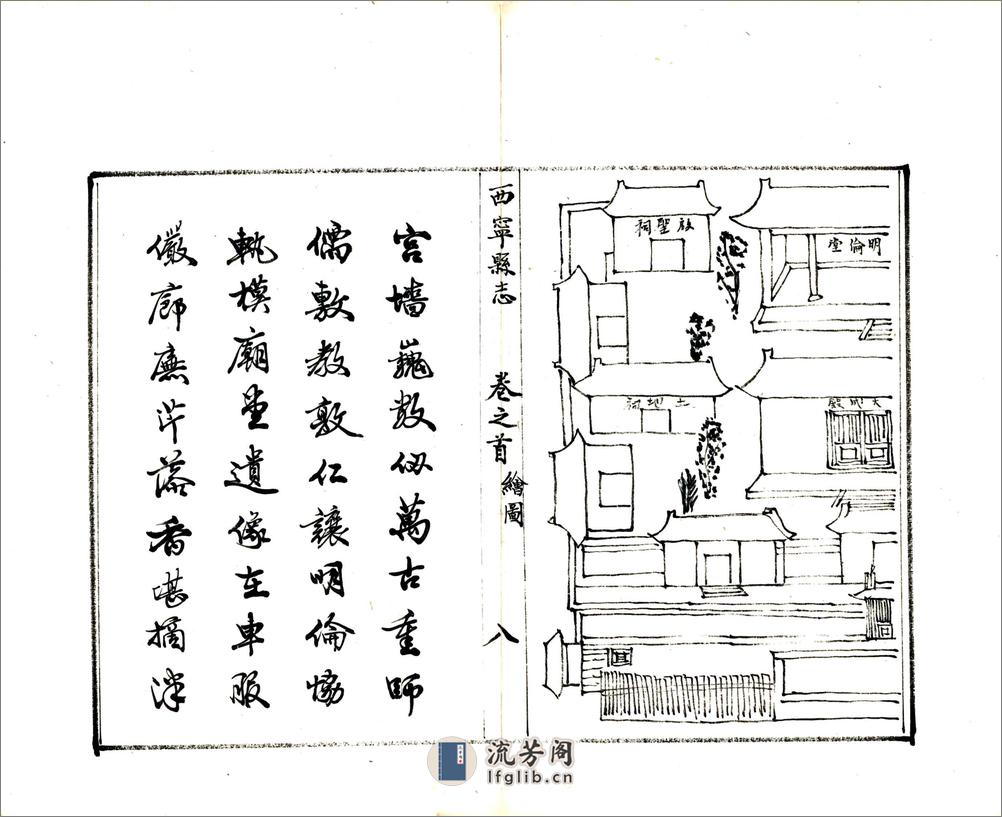 明倫堂
啟聖祠
大成殿
土地祠
西寧縣志 卷之首 繪圖 八
宮墻巍數仞萬古重師
儒敷教敦仁讓明倫協
軌模廟堂遺像在車服
儼廊廡芹藻香堪摘泮
流芳阁
lfglib.cn